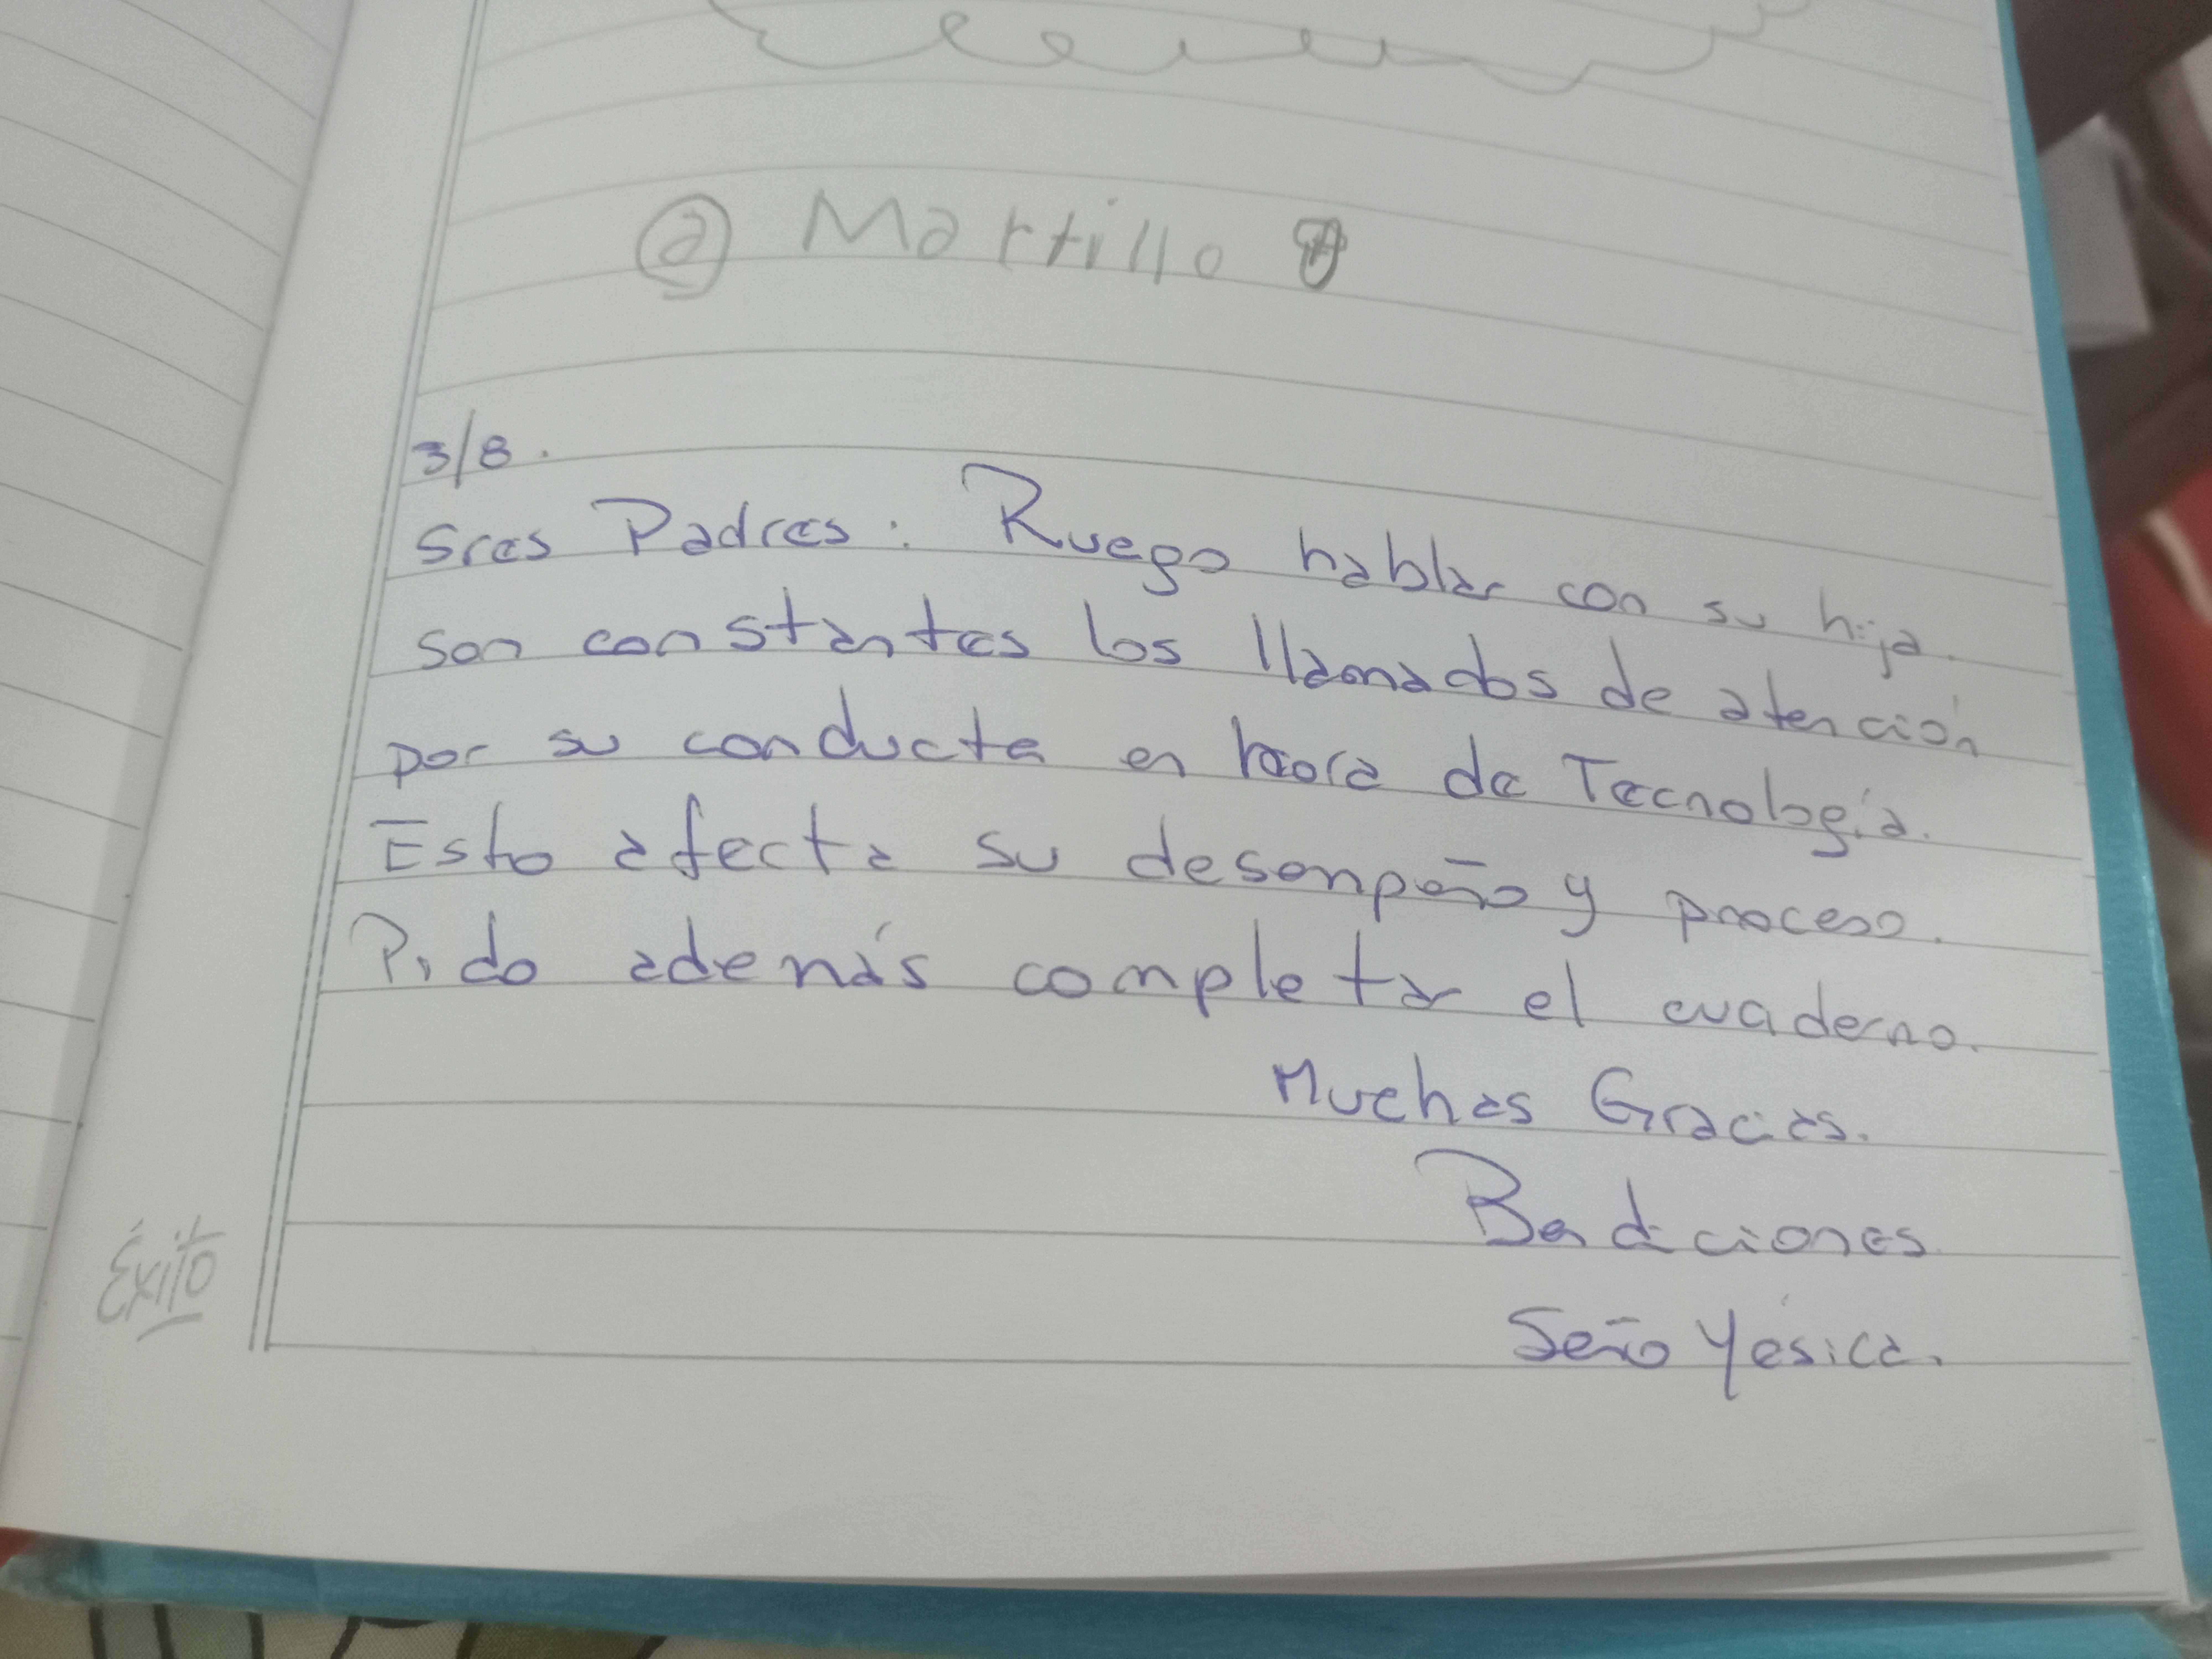 a Martillo
3/8.
Sres Padres: Ruego hablar con su hija.
son constantes los llamados de atención
por su conducta en hora de Tecnología.
Esto afecta su desempeño y proceso.
Pido además completar el cuaderno.
Muchas Gracias.
Bendiciones
Seño Yésica.
Éxito